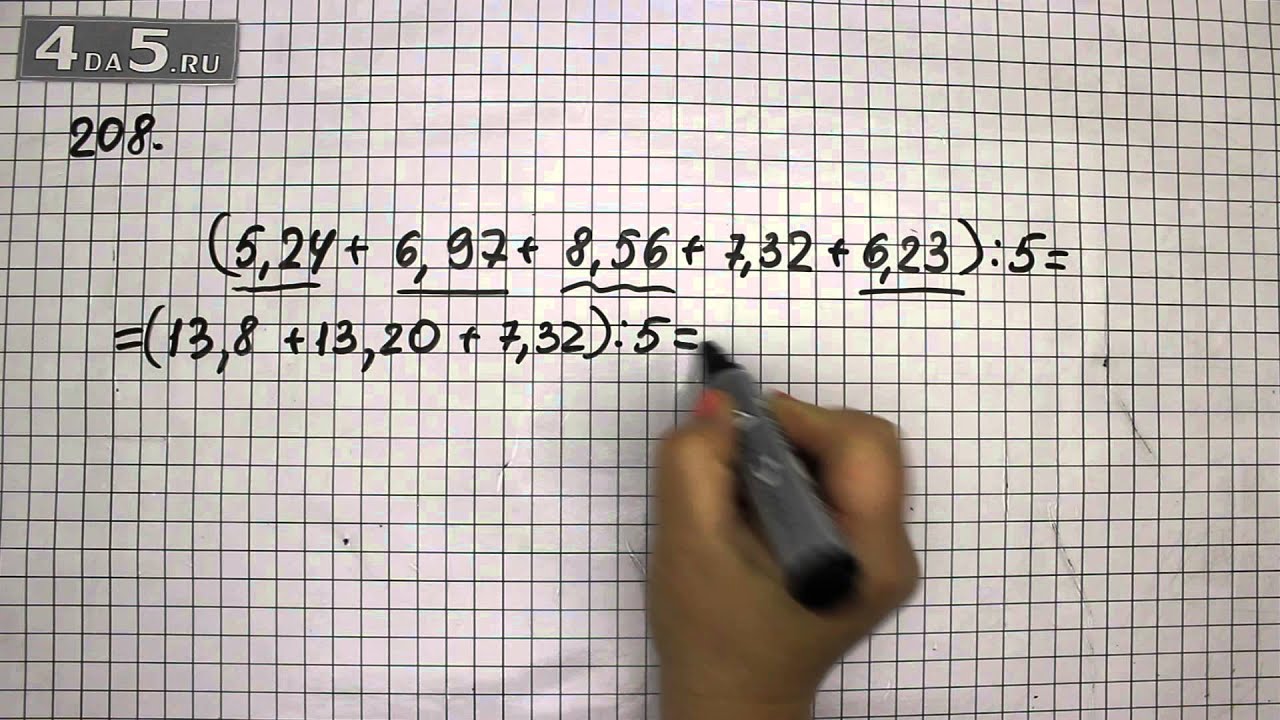 4DA5.RU
208.
(5,24 + 6,97 + 8,56 + 7,32 + 6,23) : 5 =
= (13,8 + 13,20 + 7,32) : 5 =